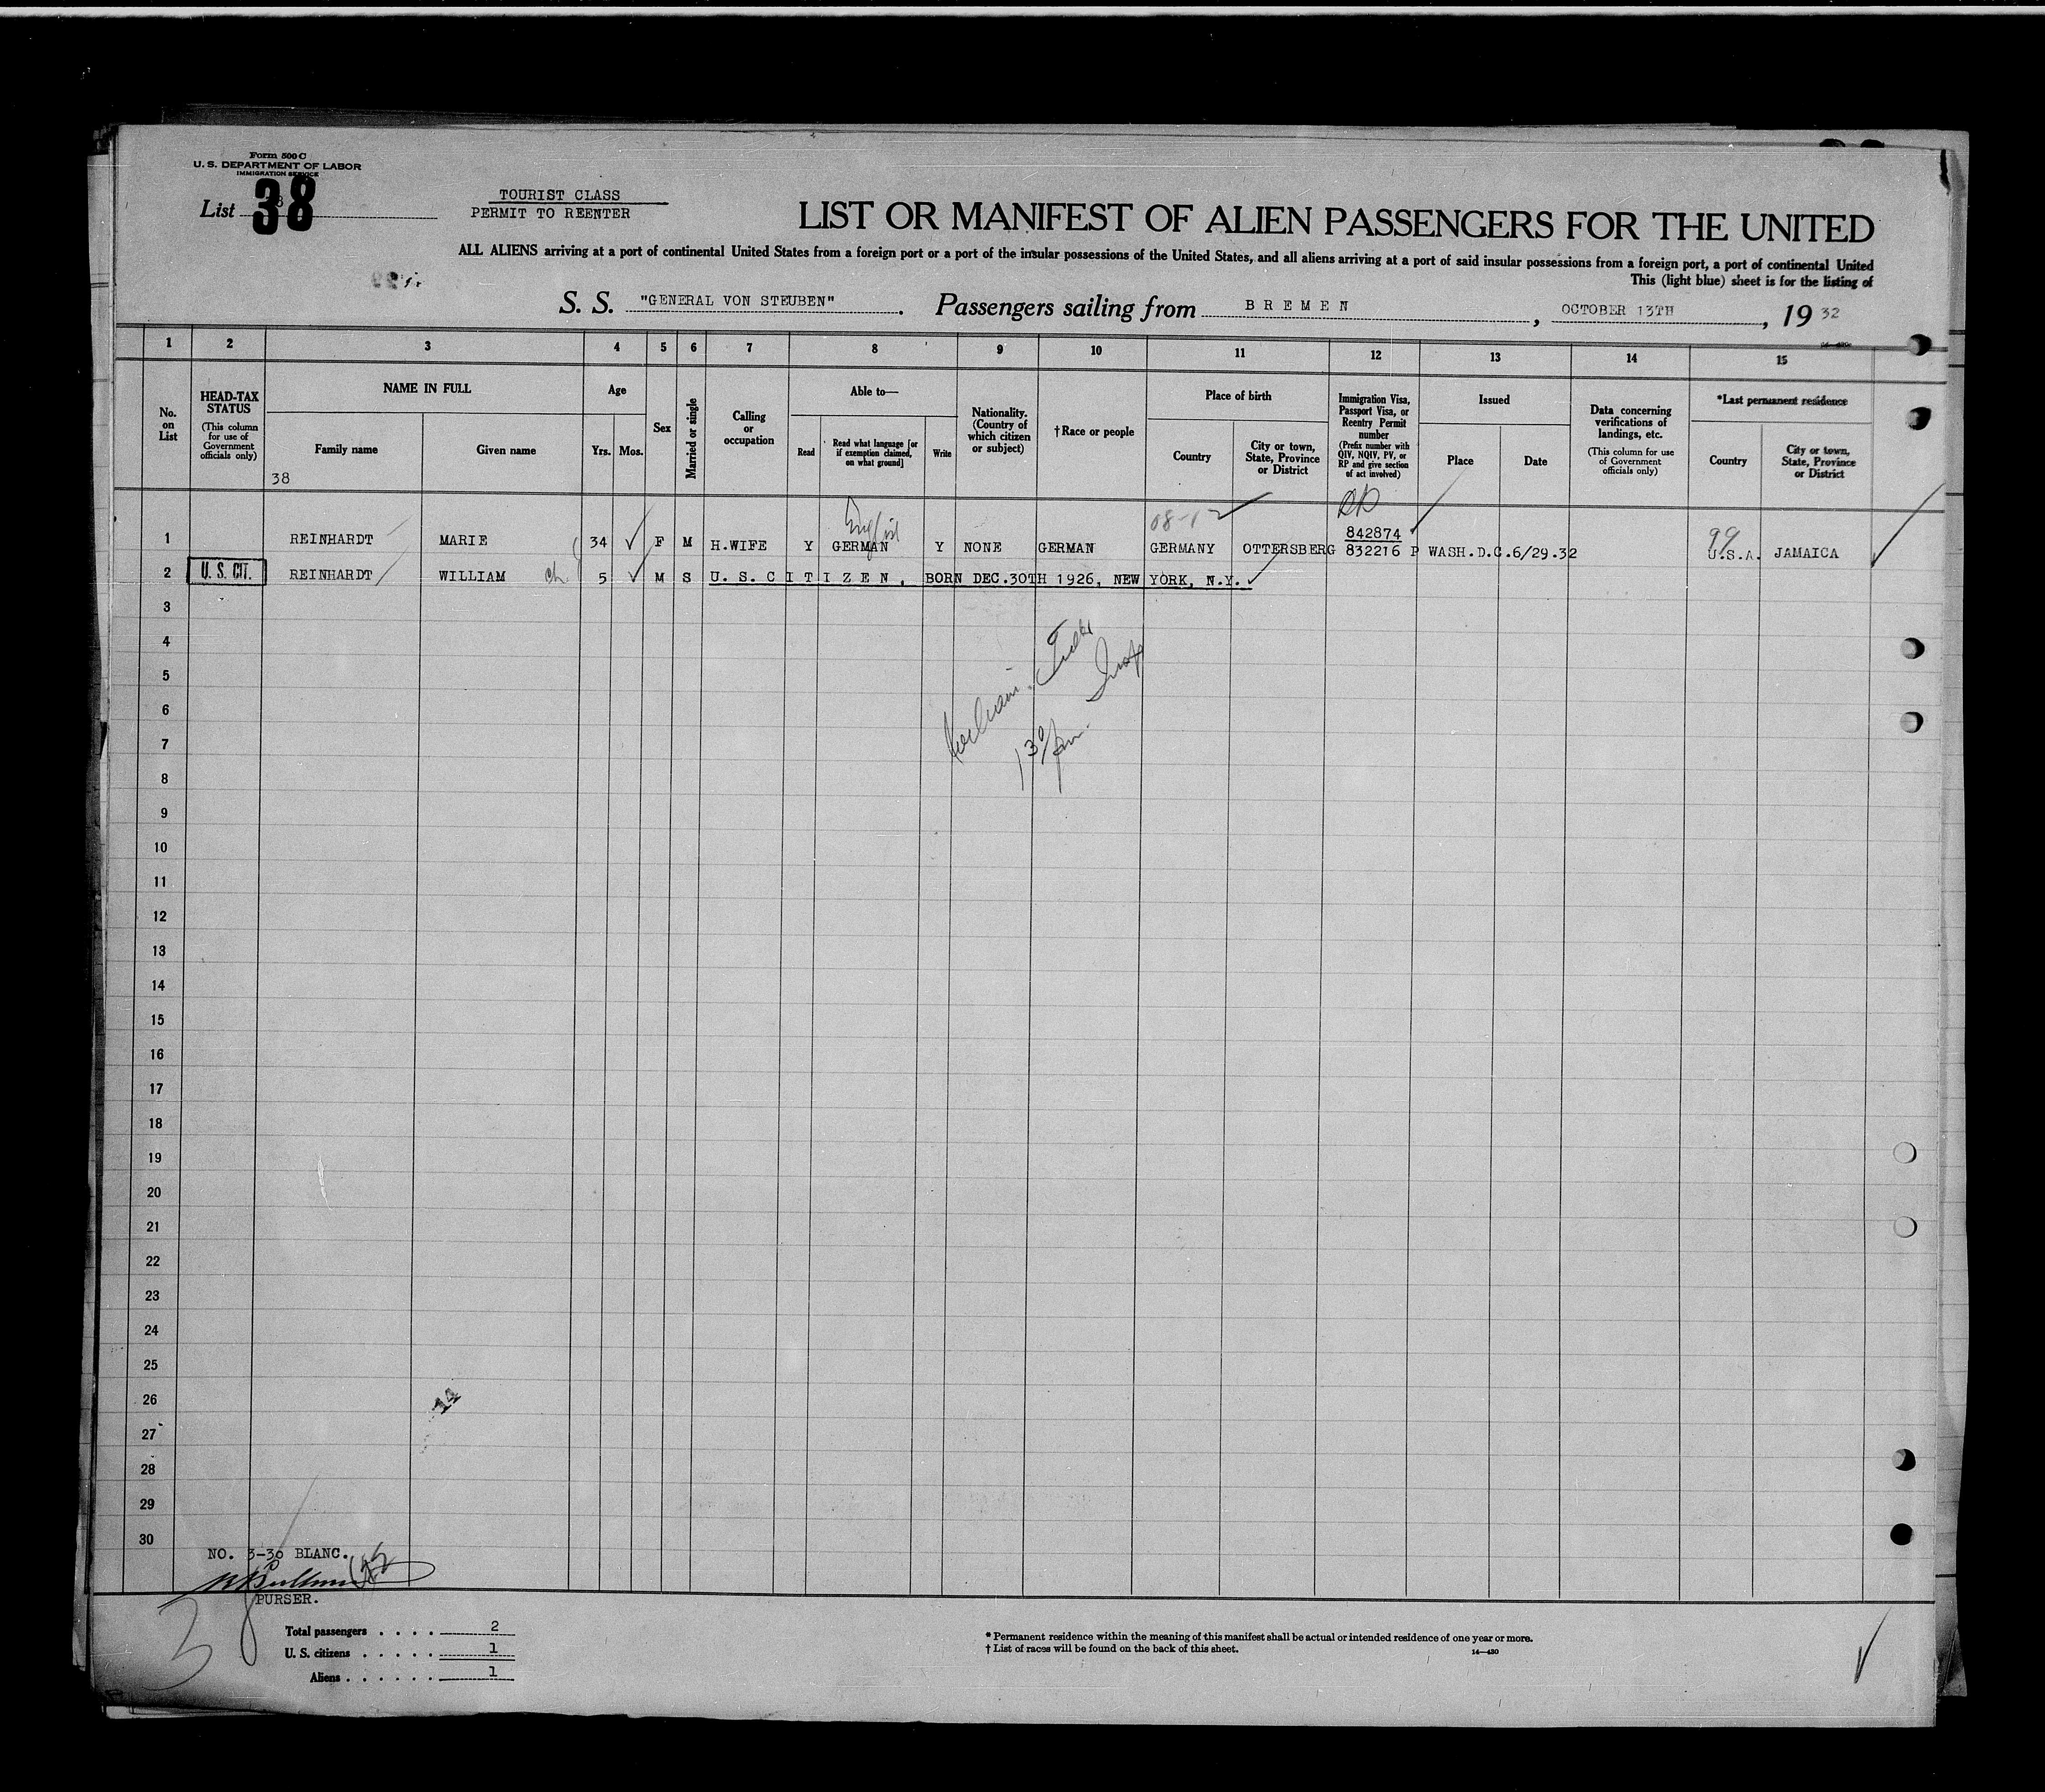 Form 500 C
U. S. DEPARTMENT OF LABOR
IMMIGRATION SERVICE
List 38
TOURIST CLASS
PERMIT TO REENTER
LIST OR MANIFEST OF ALIEN PASSENGERS FOR THE UNITED
ALL ALIENS arriving at a port of continental United States from a foreign port or a port of the insular possessions of the United States, and all aliens arriving at a port of said insular possessions from a foreign port, a port of continental United
This (light blue) sheet is for the listing of
S. S. "GENERAL VON STEUBEN". Passengers sailing from BREMEN, OCTOBER 13TH, 19 32
1 2 3 4 5 6 7 8 9 10 11 12 13 14 15
No. on List
HEAD-TAX STATUS (This column for use of Government officials only)
NAME IN FULL
Family name
Given name
38
Age
Yrs.
Mos.
Sex
Married or single
Calling or occupation
Able to—
Read
Read what language [or if exemption claimed, on what ground]
Write
Nationality. (Country of which citizen or subject)
†Race or people
Place of birth
Country
City or town, State, Province or District
Immigration Visa, Passport Visa, or Reentry Permit number (Prefix number with QIV, NQIV, PV, or RP and give section of act involved)
Issued
Place
Date
Data concerning verifications of landings, etc. (This column for use of Government officials only)
*Last permanent residence
Country
City or town, State, Province or District
English
RP
842874
99
1 REINHARDT MARIE 34 F M H.WIFE Y GERMAN Y NONE GERMAN GERMANY OTTERSBERG 832216 P WASH.D.C. 6/29.32 U.S.A. JAMAICA
2 U. S. CIT. REINHARDT WILLIAM ch 5 M S U. S. CITIZEN, BORN DEC.30TH 1926, NEW YORK, N.Y.
3
4
5
6
7
8
9
10
11
12
13
14
15
16
17
18
19
20
21
22
23
24
25
26
27
28
29
30
William
130 pm
14
NO. 3-30 BLANC.
PURSER.
3
Total passengers . . . . 2
U. S. citizens . . . . . 1
Aliens . . . . . . 1
* Permanent residence within the meaning of this manifest shall be actual or intended residence of one year or more.
† List of races will be found on the back of this sheet.
14—430